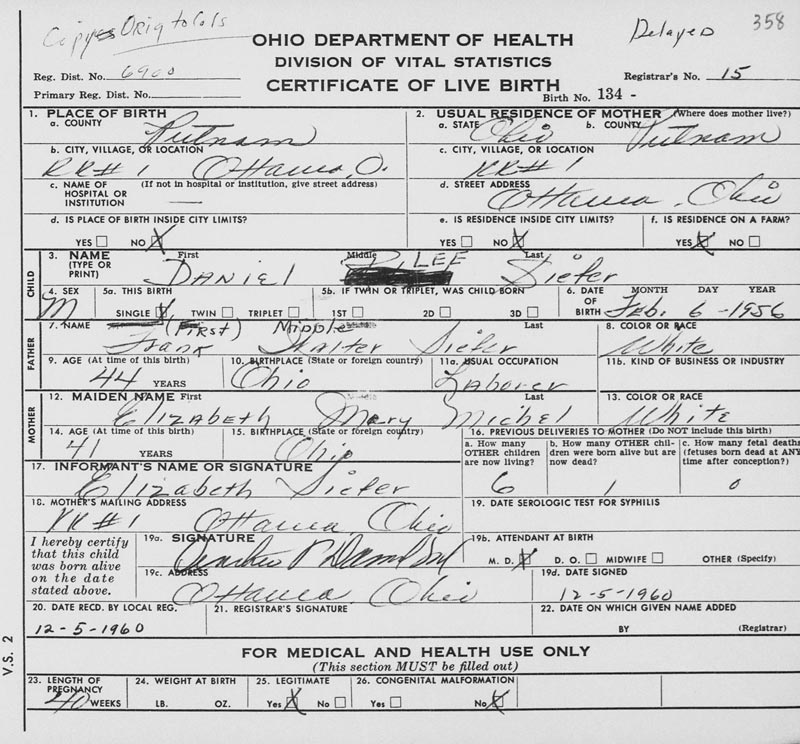 Copy Orig to Cols
Delayed
358
OHIO DEPARTMENT OF HEALTH
DIVISION OF VITAL STATISTICS
CERTIFICATE OF LIVE BIRTH
Reg. Dist. No. 6900
Registrar's No. 15
Primary Reg. Dist. No.
Birth No. 134 -
1. PLACE OF BIRTH
a. COUNTY Putnam
2. USUAL RESIDENCE OF MOTHER (Where does mother live?)
a. STATE Ohio b. COUNTY Putnam
b. CITY, VILLAGE, OR LOCATION
RR#1 Ottawa, O.
c. CITY, VILLAGE, OR LOCATION
RR#1
c. NAME OF HOSPITAL OR INSTITUTION (If not in hospital or institution, give street address) —
d. STREET ADDRESS
Ottawa, Ohio
d. IS PLACE OF BIRTH INSIDE CITY LIMITS?
YES NO X
e. IS RESIDENCE INSIDE CITY LIMITS?
YES NO X
f. IS RESIDENCE ON A FARM?
YES X NO
CHILD
3. NAME (TYPE OR PRINT) First Middle Last
Daniel LEE Siefer
4. SEX M
5a. THIS BIRTH
SINGLE X TWIN TRIPLET
5b. IF TWIN OR TRIPLET, WAS CHILD BORN
1ST 2D 3D
6. DATE OF BIRTH MONTH DAY YEAR
Feb. 6 - 1956
FATHER
7. NAME (First) Middle Last
Frank Walter Siefer
8. COLOR OR RACE
White
9. AGE (At time of this birth)
44 YEARS
10. BIRTHPLACE (State or foreign country)
Ohio
11a. USUAL OCCUPATION
Laborer
11b. KIND OF BUSINESS OR INDUSTRY
MOTHER
12. MAIDEN NAME First Last
Elizabeth Mary Michel
13. COLOR OR RACE
White
14. AGE (At time of this birth)
41 YEARS
15. BIRTHPLACE (State or foreign country)
Ohio
16. PREVIOUS DELIVERIES TO MOTHER (Do NOT include this birth)
a. How many OTHER children are now living?
6
b. How many OTHER children were born alive but are now dead?
1
c. How many fetal deaths (fetuses born dead at ANY time after conception?)
0
17. INFORMANT'S NAME OR SIGNATURE
Elizabeth Siefer
18. MOTHER'S MAILING ADDRESS
RR#1 Ottawa, Ohio
19. DATE SEROLOGIC TEST FOR SYPHILIS
I hereby certify
that this child
was born alive
on the date
stated above.
19a. SIGNATURE
19b. ATTENDANT AT BIRTH
M. D. X D. O. MIDWIFE OTHER (Specify)
19c. ADDRESS
Ottawa, Ohio
19d. DATE SIGNED
12-5-1960
20. DATE RECD. BY LOCAL REG.
12-5-1960
21. REGISTRAR'S SIGNATURE
22. DATE ON WHICH GIVEN NAME ADDED
BY (Registrar)
V.S. 2
FOR MEDICAL AND HEALTH USE ONLY
(This section MUST be filled out)
23. LENGTH OF PREGNANCY
40 WEEKS
24. WEIGHT AT BIRTH
LB. OZ.
25. LEGITIMATE
Yes X No
26. CONGENITAL MALFORMATION
Yes No X